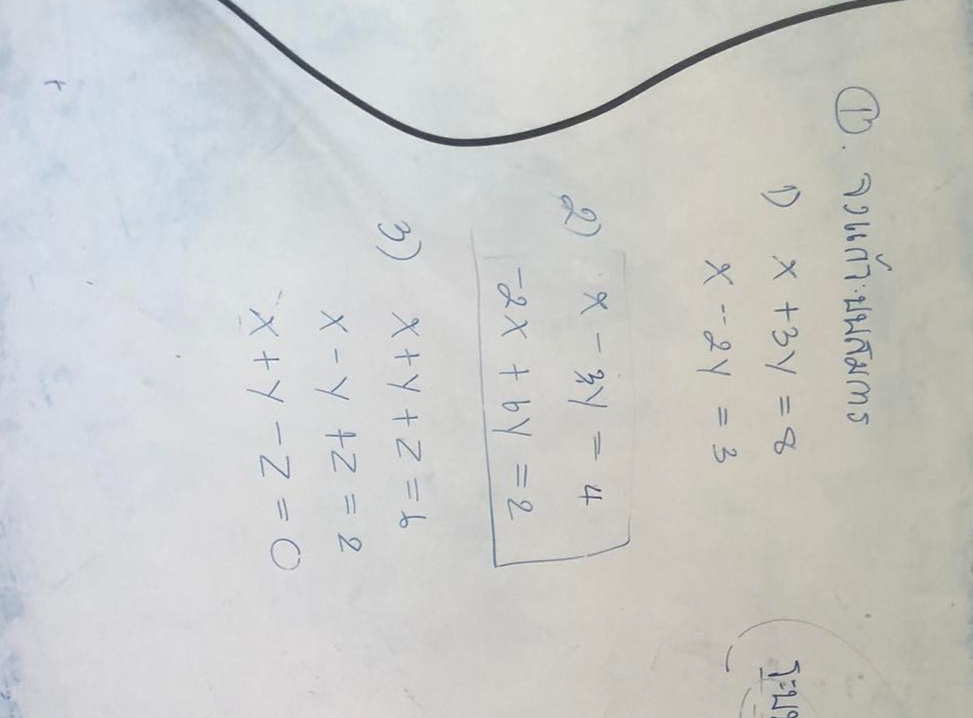 ①. จงแก้ระบบสมการ
1) x + 3y = 8
x - 2y = 3
2) x - 3y = 4
-2x + 6y = 2
3) x + y + z = 6
x - y + z = 2
x + y - z = 0